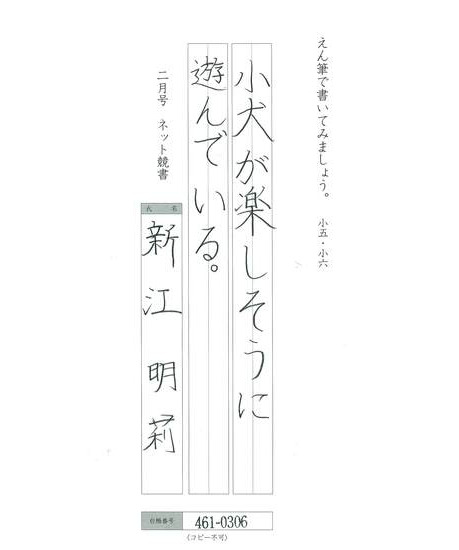 えん筆で書いてみましょう。 小五・小六
小犬が楽しそうに
遊んでいる。
二月号 ネット競書
氏名
新江 明莉
台帳番号
461-0306
(コピー不可)